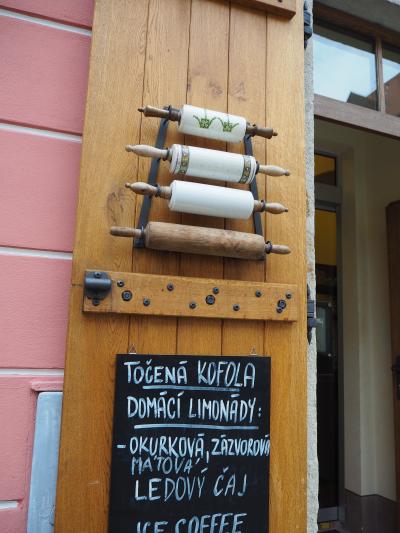 TOČENÁ KOFOLA
DOMÁCÍ LIMONÁDY:
- OKURKOVÁ, ZÁZVOROVÁ
MÁTOVÁ
LEDOVÝ ČAJ
ICE COFFEE